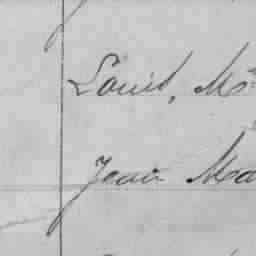 Louis, M
Jean Ma